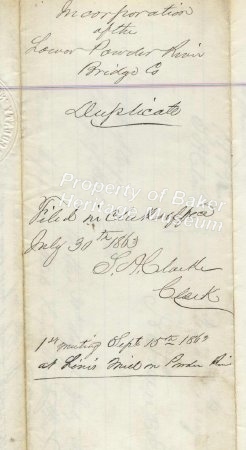 Incorporation
of the
Lower Powder River
Bridge Co
Duplicate
Property of Baker
Heritage Museum
Filed in Clerks office
July 30th 1863
S. A. Clarke
Clerk
1st meeting Sept 15th 1863
at Mill on Powder River